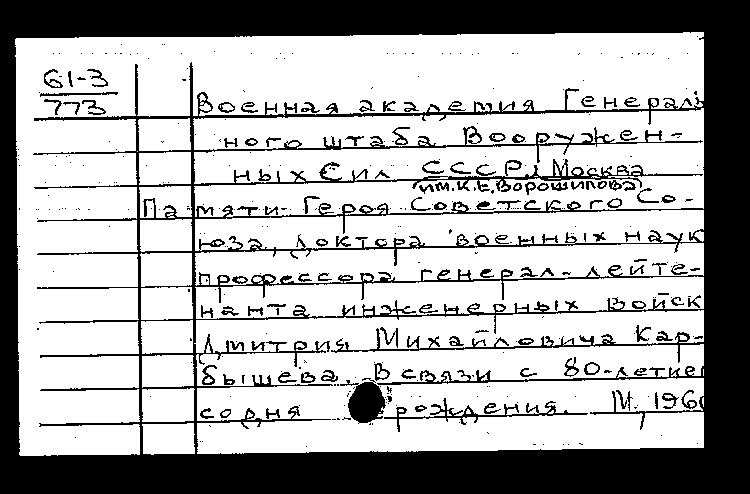 61-3
773
Военная академия Генераль
ного штаба Вооружен-
ных Сил СССР, Москва
(им. К.Е. Ворошилова)
Памяти Героя Советского Со-
юза, доктора военных наук
профессора генерал-лейте-
нанта инженерных войск
Дмитрия Михайловича Кар-
бышева. В связи с 80-летием
со дня рождения. М, 1960